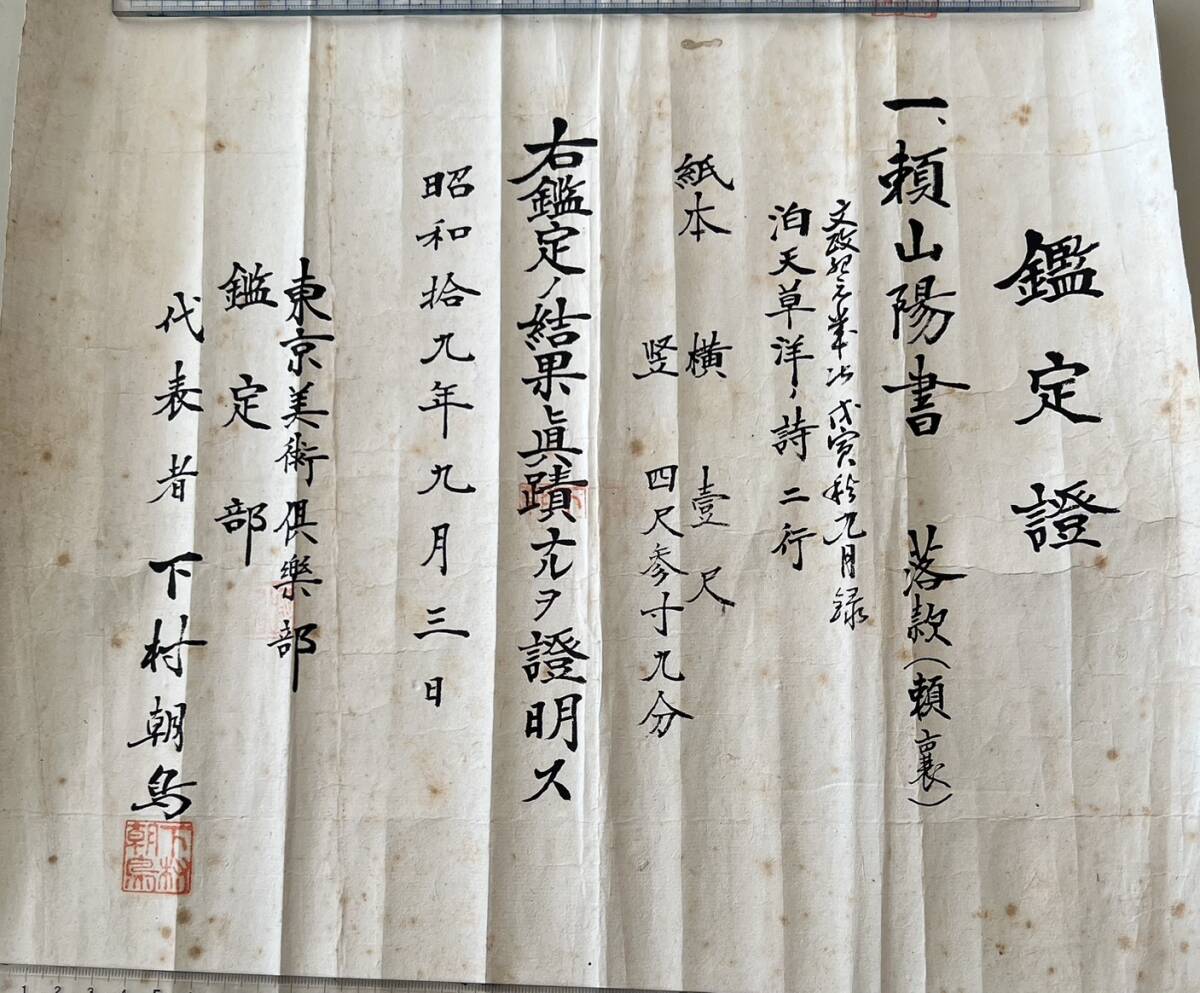 鑑定證
一、頼山陽書 落款(頼襄)
文政紀元 戊寅 九月録
泊天草洋ノ詩二行
紙本 横 壹尺
竪 四尺参寸九分
右鑑定ノ結果眞蹟ナルヲ證明ス
昭和拾九年九月三日
東京美術俱樂部
鑑定部
代表者 下村朝鳥
下村
朝鳥
1 2 3 4 5